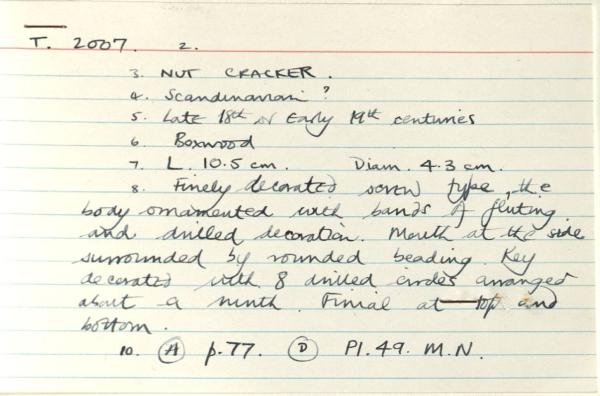 T. 2007. 2.
3. NUT CRACKER.
4. Scandinavian ?
5. Late 18th or Early 19th centuries
6. Boxwood
7. L. 10.5 cm. Diam. 4.3 cm.
8. Finely decorated screw type, the
body ornamented with bands of fluting
and drilled decoration. Mouth at the side
surrounded by rounded beading. Key
decorated with 8 drilled circles arranged
about a ninth. Finial at top and
bottom.
10. (A) p.77. (D) Pl. 49. M.N.